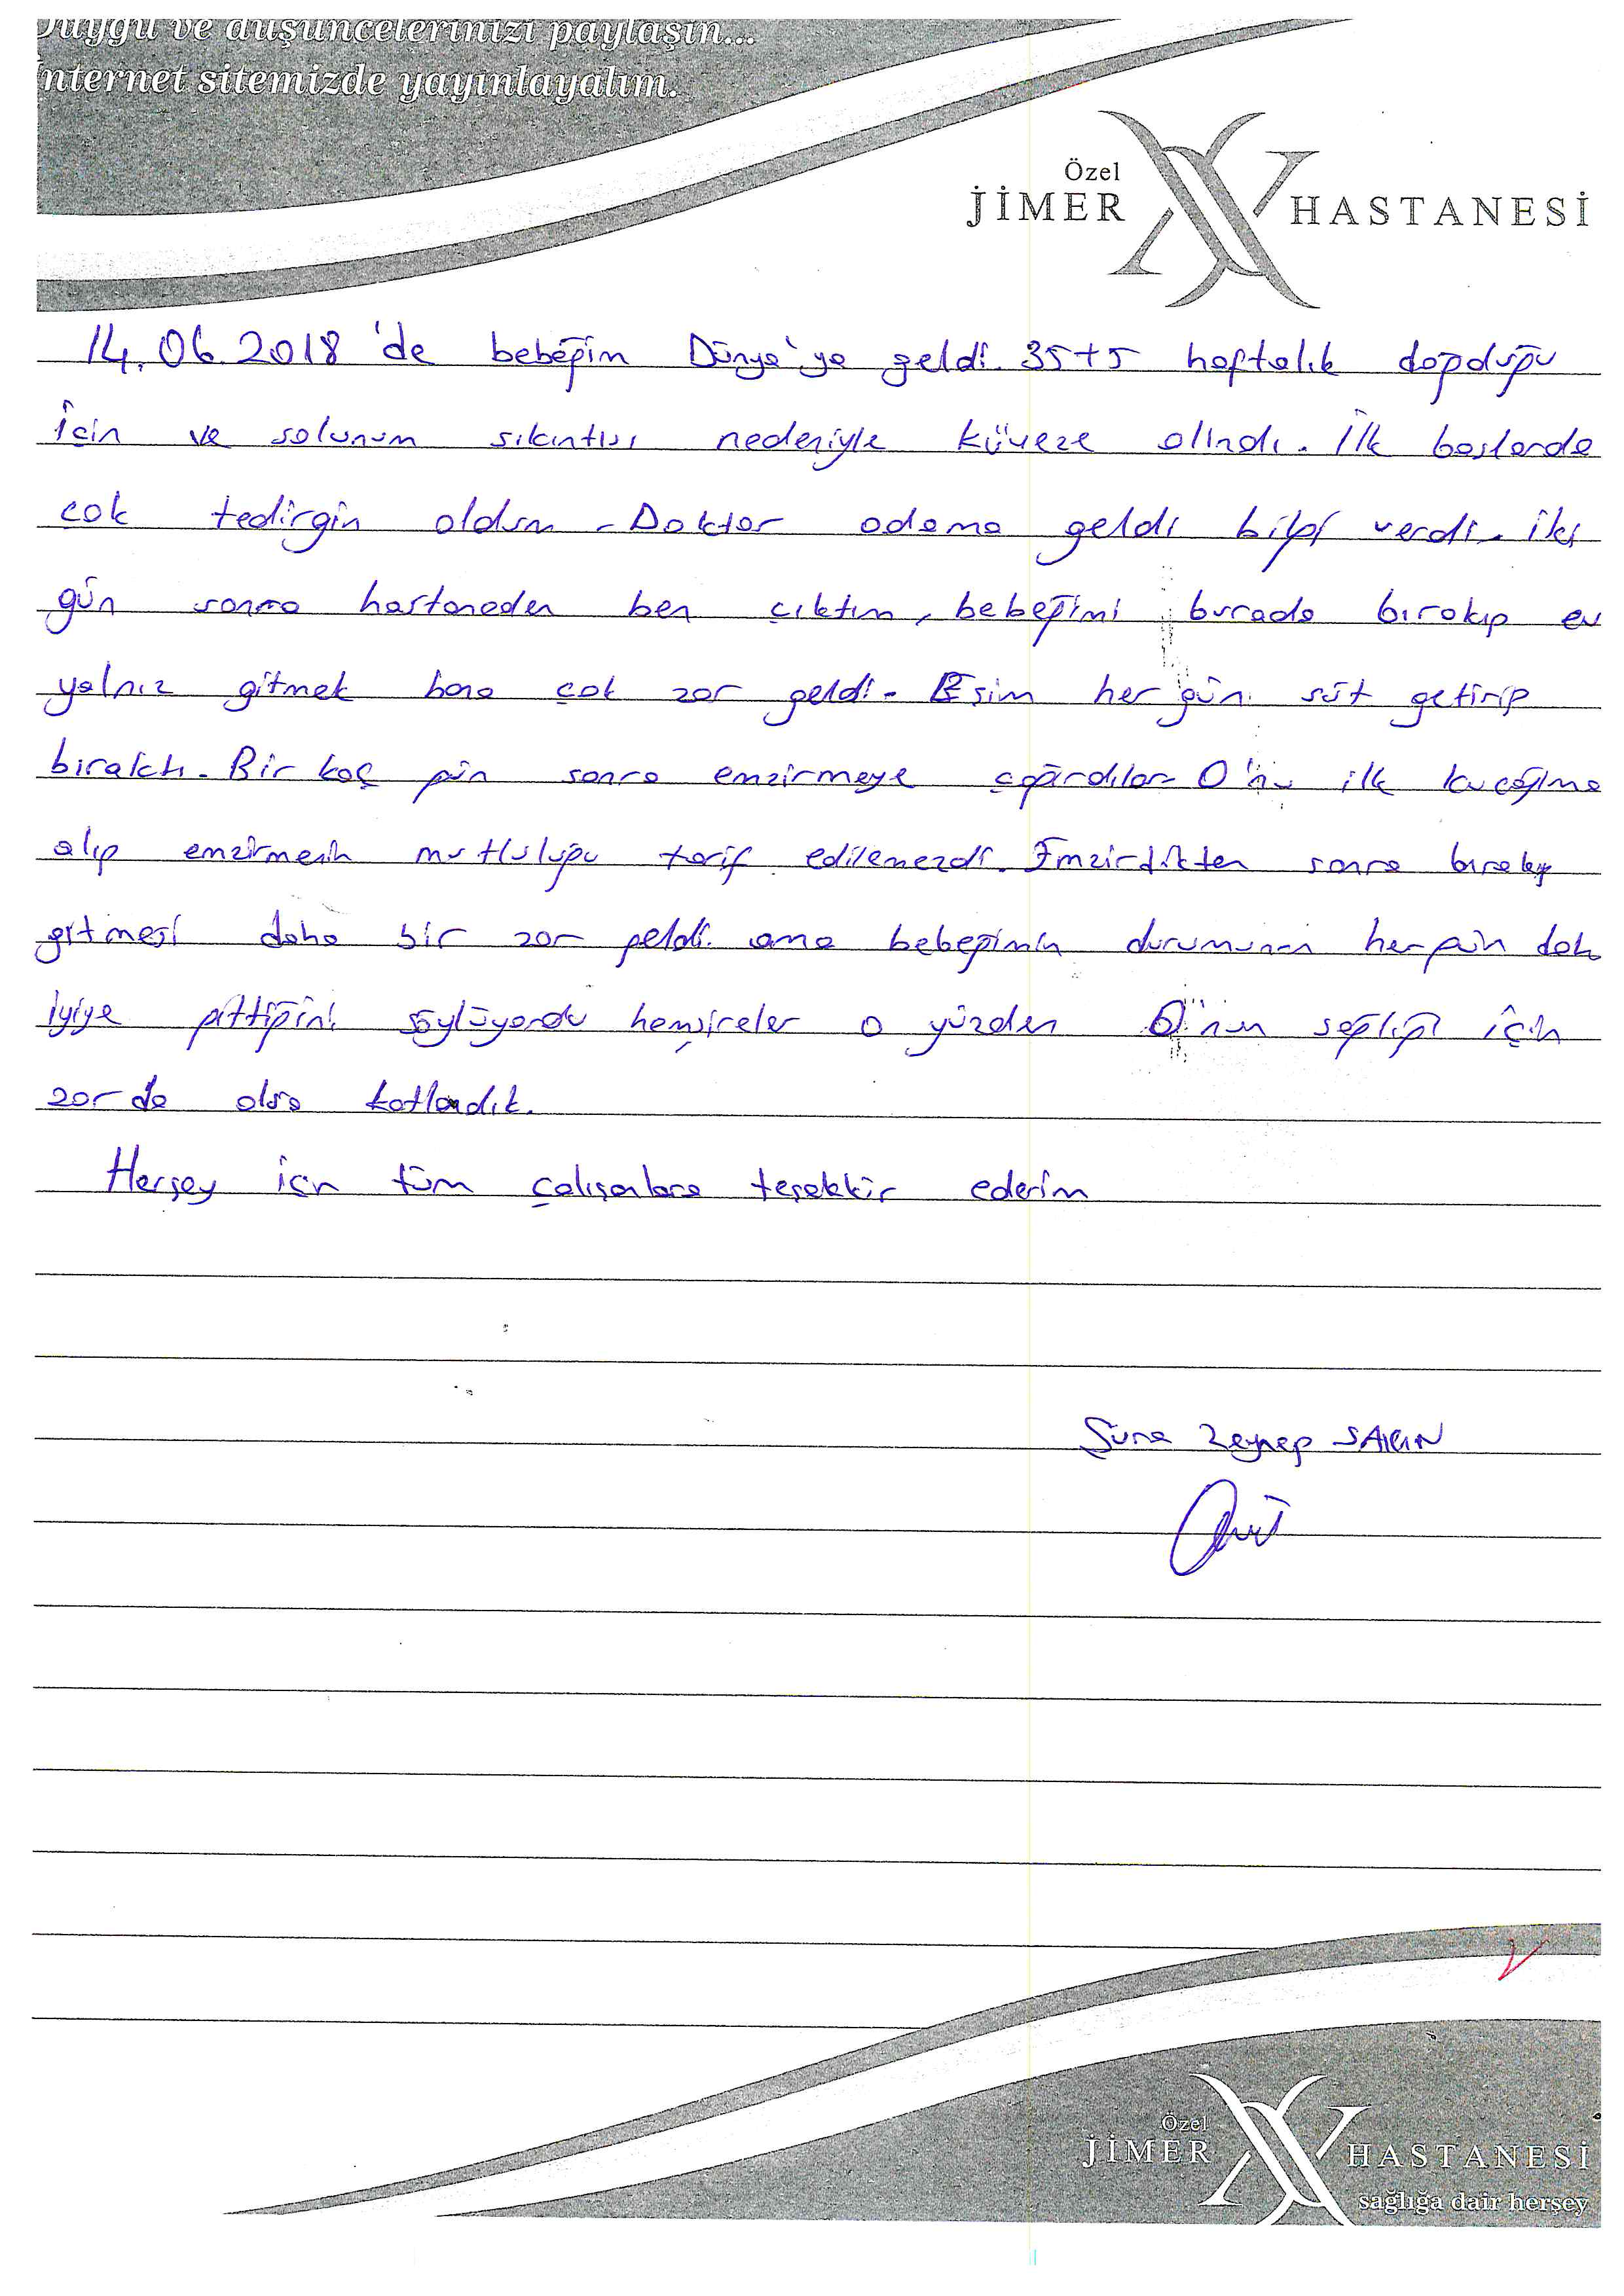 Duygu ve düşüncelerinizi paylaşın...
İnternet sitemizde yayınlayalım.
Özel
JİMER HASTANESİ
14.06.2018 'de bebeğim Dünya'ya geldi. 35+5 haftalık doğduğu
için ve solunum sıkıntısı nedeniyle küveze alındı. İlk başlarda
çok tedirgin oldum. Doktor odama geldi bilgi verdi. İki
gün sonra hastaneden ben çıktım, bebeğimi burada bırakıp ev
yalnız gitmek bana çok zor geldi. Eşim her gün süt getirip
bıraktı. Bir kaç gün sonra emzirmeye çağırdılar O'nu ilk kucağıma
alıp emzirmenin mutluluğu tarif edilemezdi. Emzirdikten sonra bırakıp
gitmesi daha bir zor geldi. ama bebeğimin durumunun hergün dah
iyiye gittiğini söylüyordu hemşireler o yüzden O'nun sağlığı için
zor da olsa katlandık.
Herşey için tüm çalışanlara teşekkür ederim
Zeynep
Özel
JİMER HASTANESİ
sağlığa dair herşey